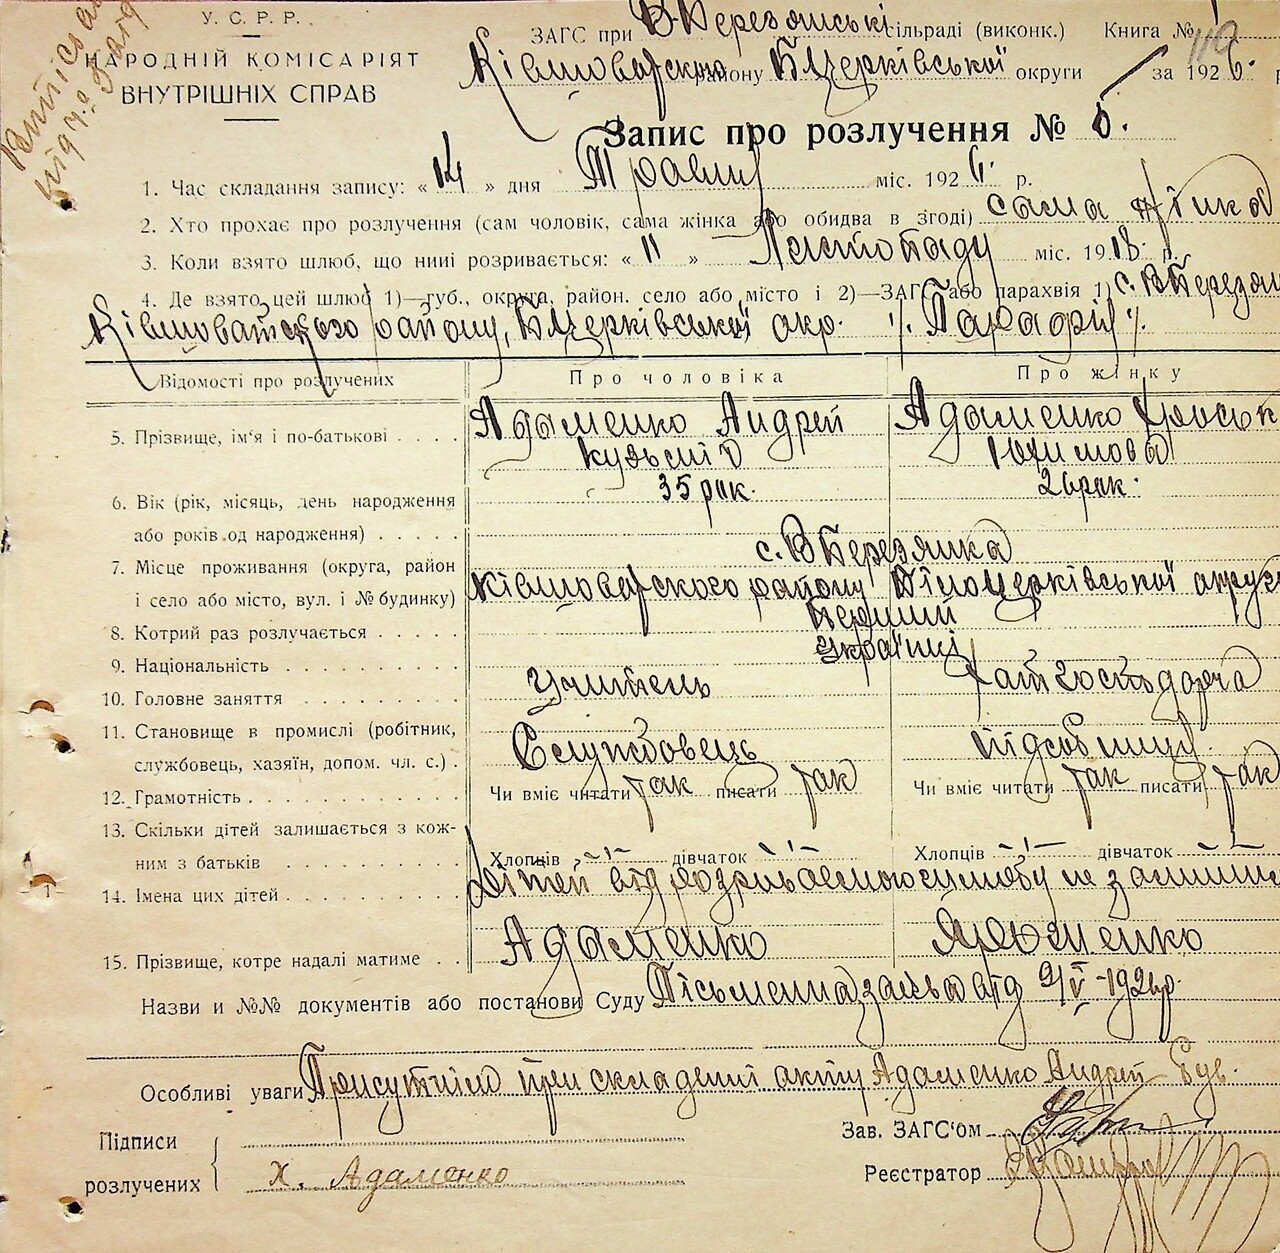 У. С. Р. Р.
НАРОДНІЙ КОМІСАРІЯТ
ВНУТРІШНІХ СПРАВ
ЗАГС при В-Березянській сільраді (виконк.) Книга №
району Б Церківської округи за 1926 р
Запис про розлучення № 5.
1. Час складання запису: « 14 » дня Травня міс. 1926 р.
2. Хто прохає про розлучення (сам чоловік, сама жінка або обидва в згоді) сама жінка
3. Коли взято шлюб, що нині розривається: « 11 » Листопаду міс. 1918 р.
4. Де взято цей шлюб 1)—губ., округа, район. село або місто і 2)—ЗАГС або парахвія 1) с. В Березян
району, Б Церківської окр.
Відомості про розлучених Про чоловіка Про жінку
5. Прізвище, ім'я і по-батькові Адаменко Андрей Адаменко
Кузьмів Юхимова
6. Вік (рік, місяць, день народження 35 рок. 26 рок.
або років од народження)
с. В Березянка
7. Місце проживання (округа, район
і село або місто, вул. і № будинку) району Білоцерківської округи
8. Котрий раз розлучається Перший
9. Національність українці
10. Головне заняття Учитель хат господарча
11. Становище в промислі (робітник,
службовець, хазяїн, допом. чл. с.) Службовець підсобницу
12. Грамотність Чи вміє читати так писати так Чи вміє читати так писати так
13. Скільки дітей залишається з кож-
ним з батьків Хлопців – дівчаток – Хлопців – дівчаток –
14. Імена цих дітей Дітей від шлюбу не
15. Прізвище, котре надалі матиме Адаменко Яременко
Назви и №№ документів або постанови Суду Письменна заява від 9/V-1926р.
Особливі уваги Присутнім при складенні акту Адаменко Андрей був.
Підписи
розлучених Х. Адаменко
Зав. ЗАГС'ом
Реєстратор